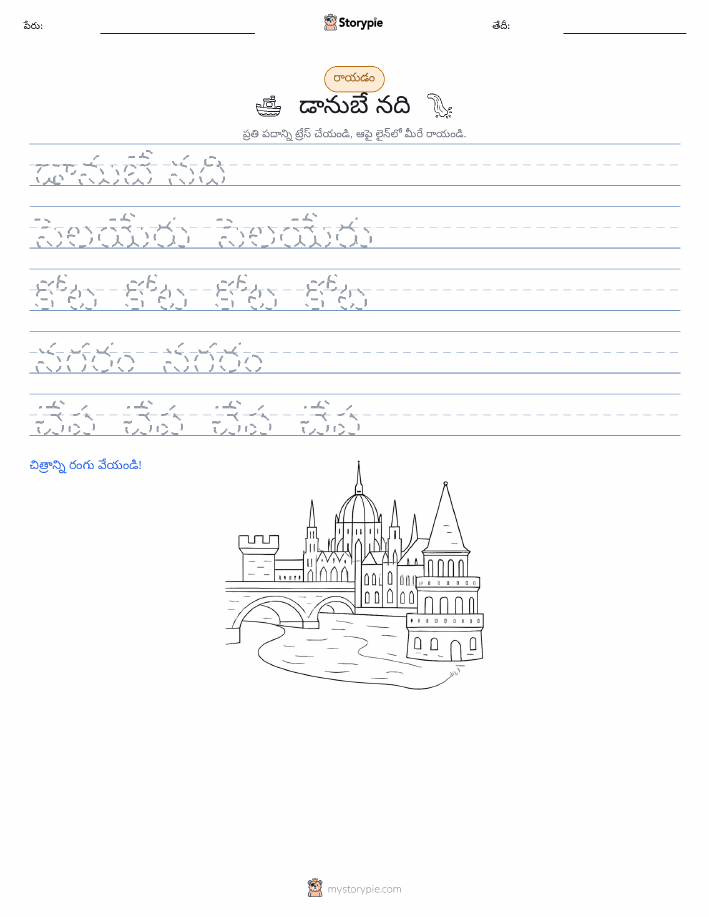 పేరు:
Storypie
తేదీ:
రాయడం
డానుబే నది
ప్రతి పదాన్ని ట్రేస్ చేయండి, ఆపై లైన్‌లో మీరే రాయండి.
డానుబే నది
సెలయేరు సెలయేరు
కోట కోట కోట కోట
నగరం నగరం
చేప చేప చేప చేప
చిత్రాన్ని రంగు వేయండి!
mystorypie.com